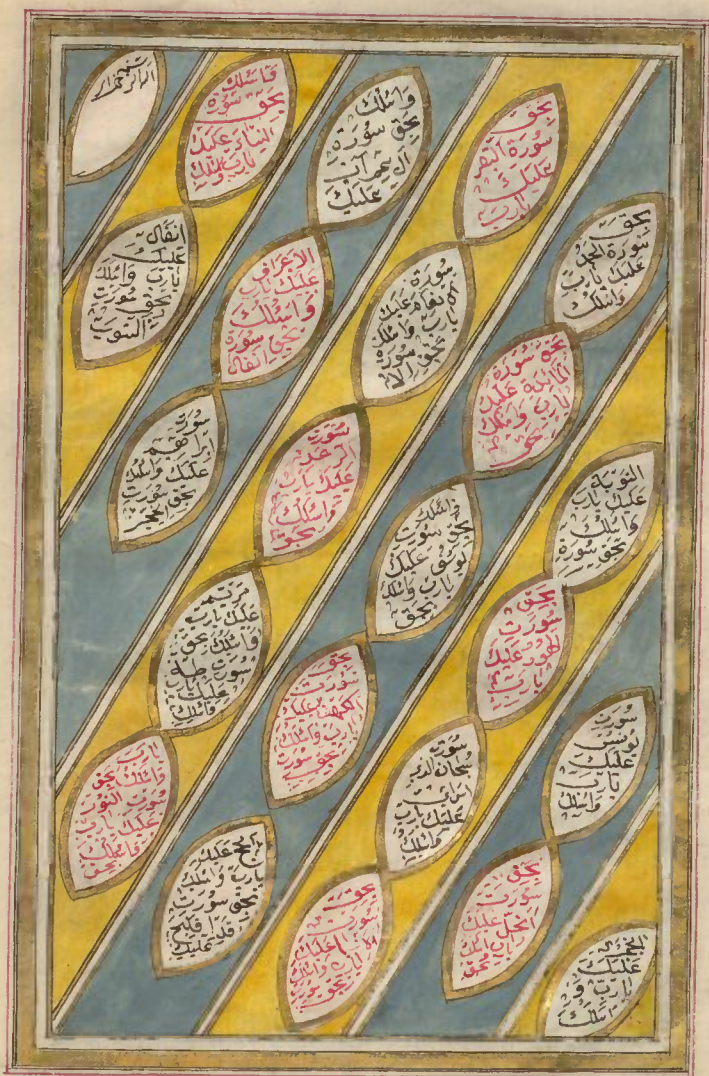 بحق
سورة الحمد
عليك يارب
واسئلك
بحق
سورة البقر
عليك
يارب
واسئلك
بحق سورة
آل عمران
عليك
فاسئلك
بحق سورة
النساء عليك
يارب واسئلك
بحق سورة
المائدة عليك
يارب
سورة
الانعام عليك
يارب واسئلك
بحق سورة
الا
الاعراف
عليك يارب
واسئلك
بحق سورة
انفال
انفال
عليك
يارب واسئلك
بحق سورت
التوبه
التوبة
عليك يارب
فاسئلك
بحق سورة
سورت
يونس
عليك
يارب
واسئلك
بحق
سورت
هود عليك
يارب
اسئلك
بحق سورت
يوسف عليك
يارب واسئلك
بحق
سورت
الرعد
عليك يارب
واسئلك
بحق
سورت
ابراهيم
عليك واسئلك
بحق سورت
الحجر
الحجر
عليك
يارب و
اسئلك
بحق
سورت
النحل عليك
يارب اسئلك
بحق
سورت
سبحان الذى
اسراى
عليك يارب
واسئلك
بحق
سورت
الكهف عليك
يارب واسئلك
بحق سورت
مريم
عليك يارب
فاسئلك بحق
سورت طه
عليك يارب
فاسئلك
بحق
سورت
الانبيا عليك
يارب واسئلك
بحق سورت
الحج عليك
يارب واسئلك
بحق سورت
قد افلح
عليك
يارب
واسئلك بحق
سورت النور
عليك يارب
فاسئلك
بحق